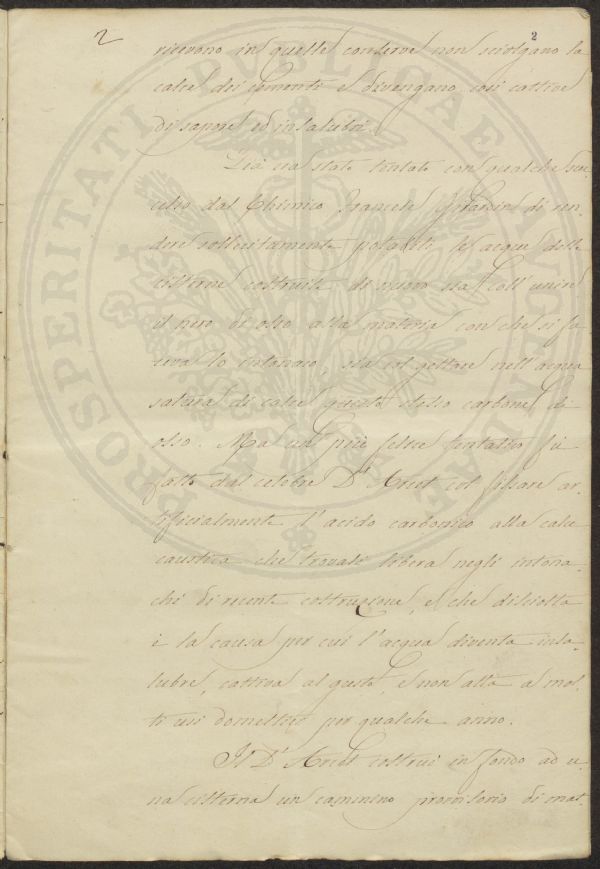 2
2
ricevono in quelle conserve non sciolgano la
calce dei cementi e divengano così cattive
di sapore ed insalubri.
Già era stato tentato con qualche suc-
cesso dal Chimico Francese Girardin di ren-
dere sollecitamente potabili le acque delle
cisterne costruite di nuovo sia coll'unire
il nero di osso alla materia con che si fa-
ceva lo intonaco, sia col gettare nell'acqua
satura di calce questo stesso carbone di
osso. Ma un più felice tentativo fu
fatto dal celebre Dr. col fissare ar-
tificialmente l'acido carbonico alla calce
caustica che trovasi libera negli intona-
chi di recente costruzione, e che disciolta
è la causa per cui l'acqua diventa insa-
lubre, cattiva al gusto, e non atta a mol-
ti usi domestici per qualche anno.
Il Dr. costruì in fondo ad u-
na cisterna un cammino provvisorio di mat-
PROSPERITATI PUBLICAE AUGENDAE